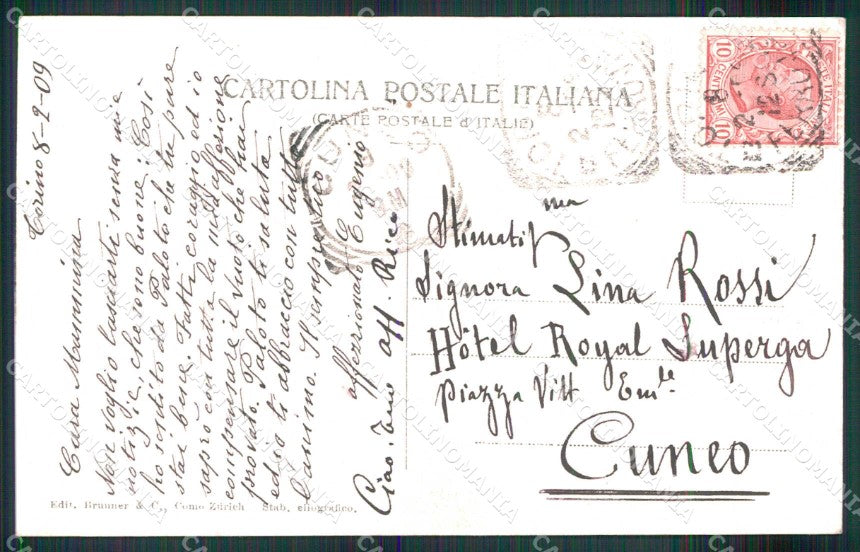 CARTOLINA POSTALE ITALIANA
(CARTE POSTALE d'ITALIE)
Torino 8-2-09
Cara Mammina
Non voglio lasciarti senza mie
notizie, che sono buone. Così
ho sentito da Paloto che tu pure
stai bene. Fatti coraggio ed io
saprò con tutta la mia affezione
compensare il vuoto che hai
provato. Paloto ti saluta
ed io ti abbraccio con tutto
l'animo. Il sempre tuo
affezionato Eugenio
Ciao. Tuo aff. Rico
Stimatis
ma
Signora Lina Rossi
Hôtel Royal Superga
Piazza Vitt Em.le
Cuneo
Edit. Brunner & C., Como-Zürich Stab. eliografico.
10 CENT
POSTE ITALIANE
CARTOLINOMANIA